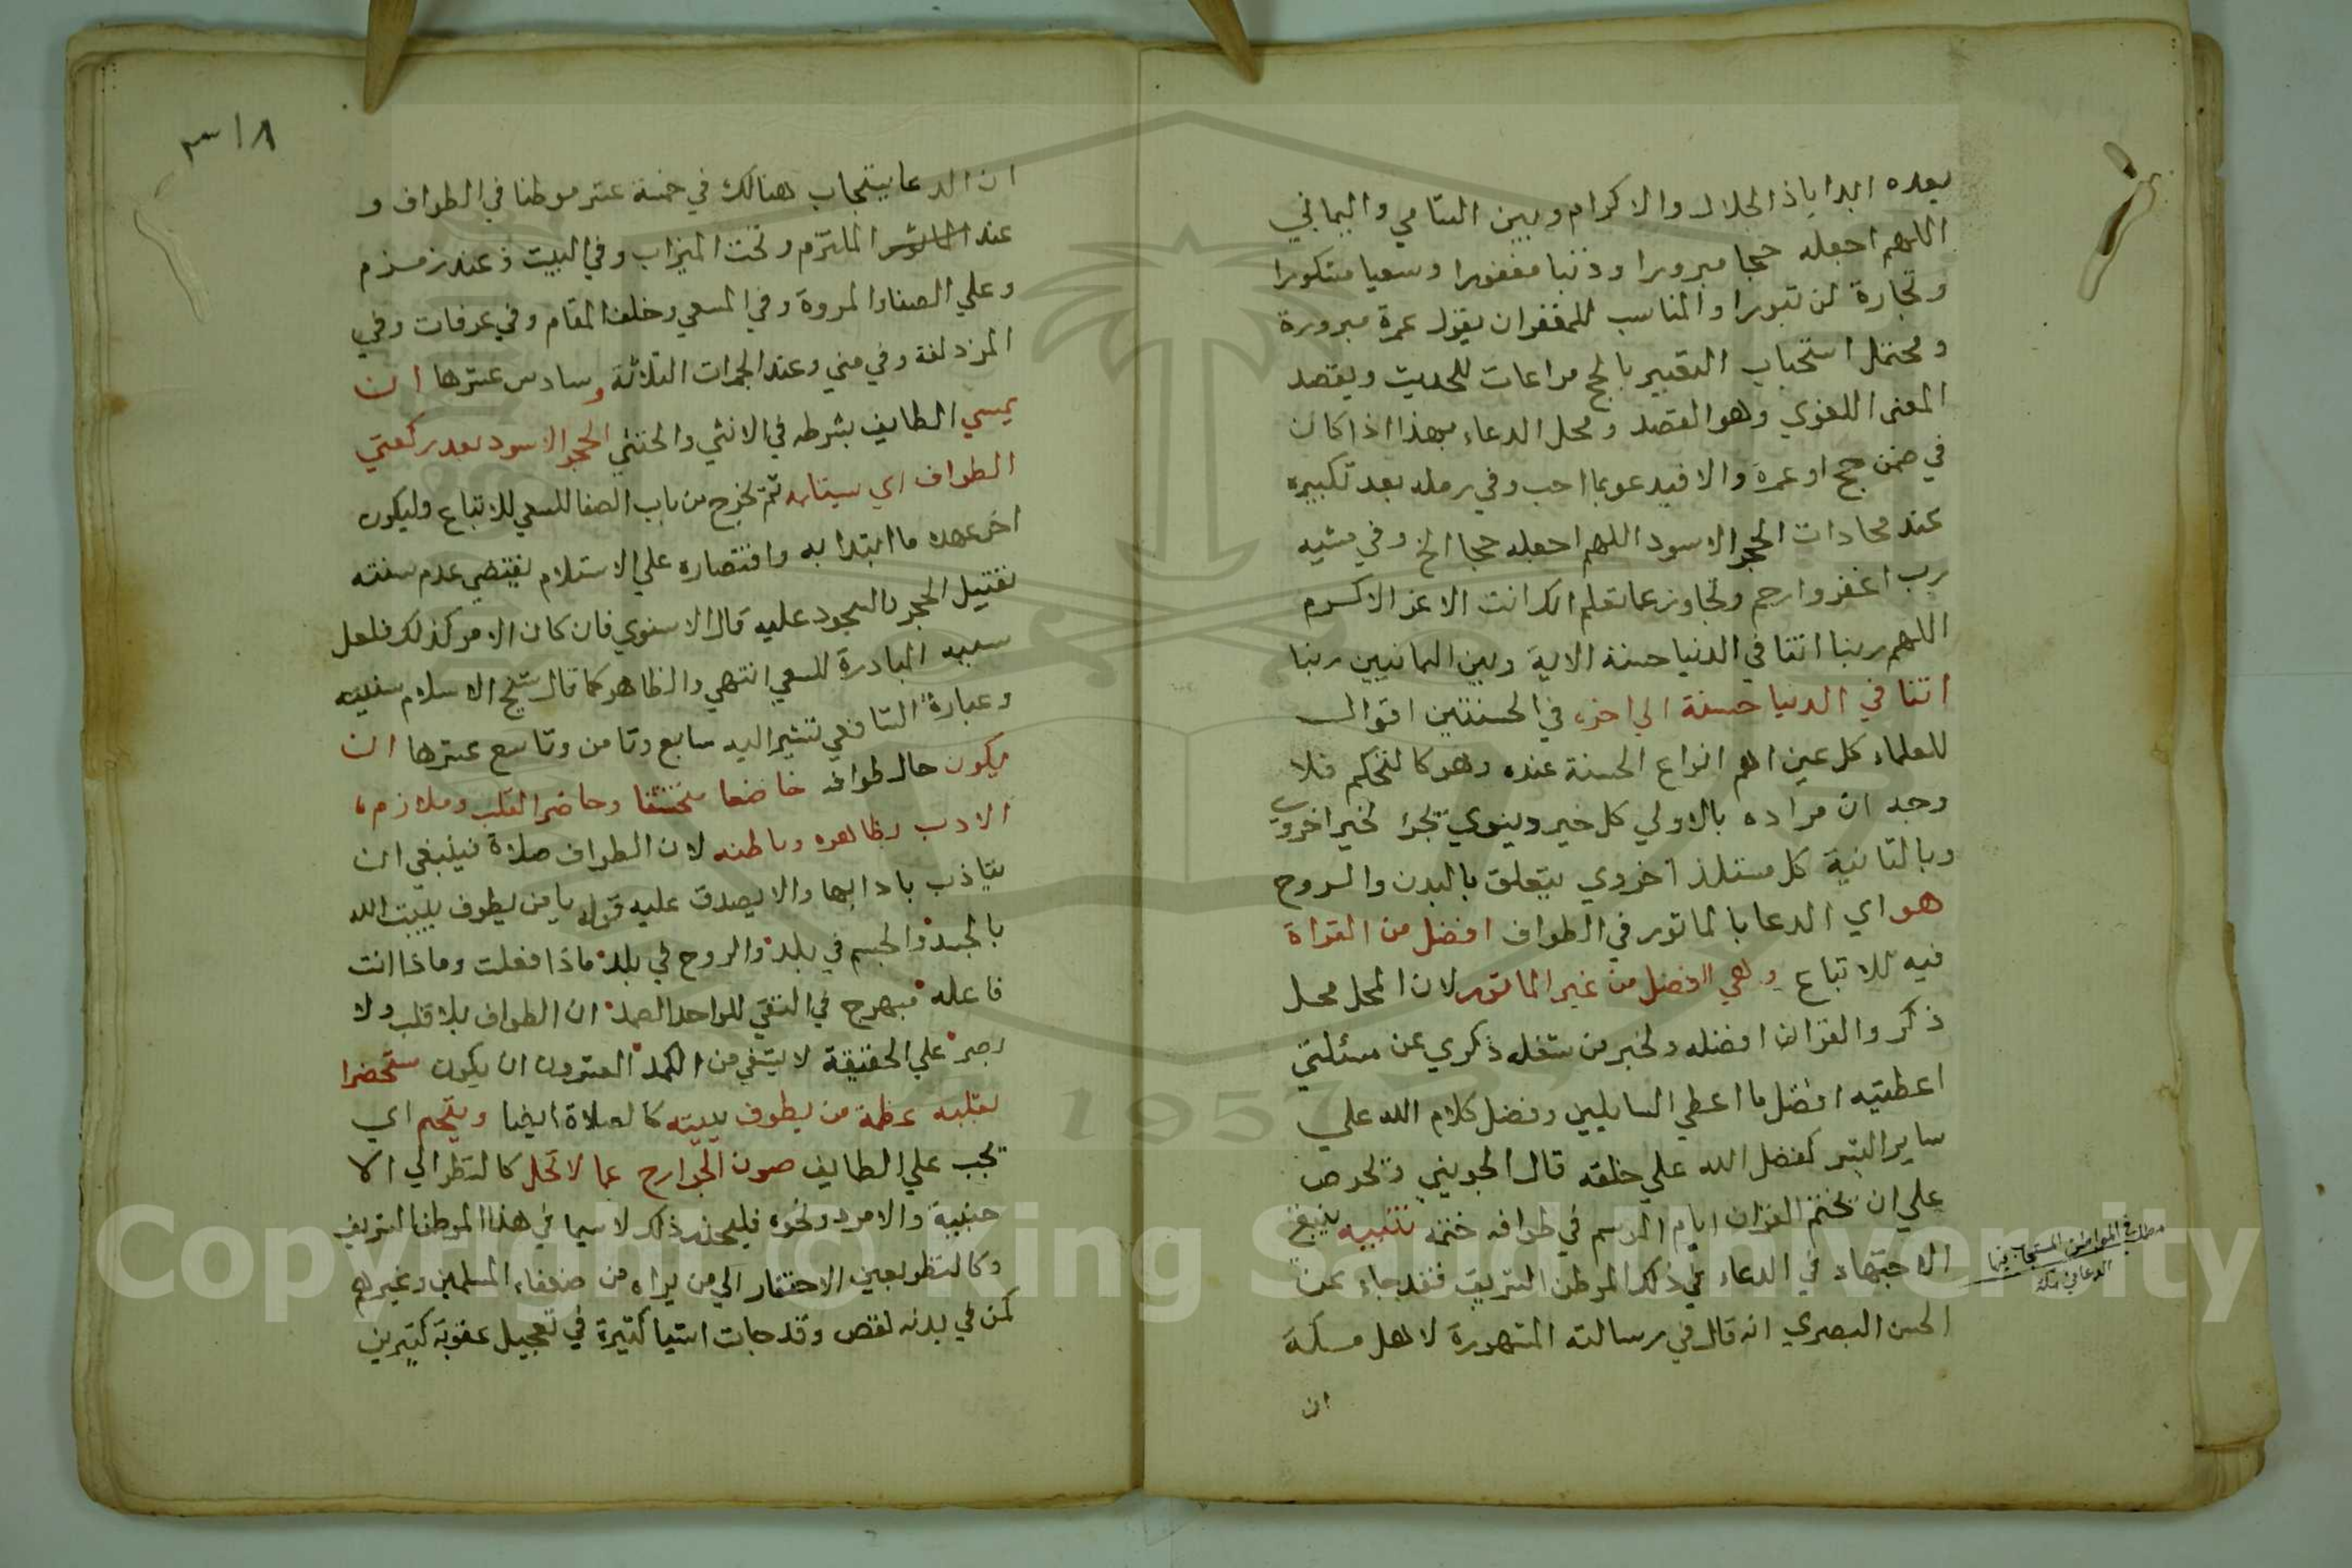 بعده ابدا ياذ الجلال والاكرام وبين الشامي واليماني
اللهم اجعله حجا مبرورا وذنبا مغفورا وسعيا مشكورا
وتجارة لن تبورا والمناسب للمعتمر ان يقول عمرة مبرورة
ومحتمل استحباب التعبير بالحج مراعات للحديث ويقصد
المعنى اللغوي وهو القصد ومحل الدعاء بهذا اذا كان
في ضمن حج او عمرة والا فيدعو بما احب وفي رمله بعد تكبيره
عند محاذات الحجر الاسود اللهم اجعله حجا الخ وفي مشيه
رب اغفر وارحم وتجاوز عما تعلم انك انت الاعز الاكرم
اللهم ربنا اتنا في الدنيا حسنة الاية وبين اليمانيين ربنا
اتنا في الدنيا حسنة الى اخره في الحسنتين اقوال
للعلماء كل عين اهم انواع الحسنة عنده وهو كالتحكم فلا
وجه ان مراده بالاولي كل خير دينوي يجر لخير اخروي
وبالثانية كل مستلذ اخروي يتعلق بالبدن والروح
هو اي الدعا بالماثور في الطواف افضل من القراة
فيه للاتباع وهي افضل من غير الماثور لان المحل محل
ذكر والقران افضله ولخبر من شغله ذكري عن مسئلتي
اعطيته افضل ما اعطي السايلين وفضل كلام الله علي
ساير الكتب كفضل الله علي خلقه قال الجويني ويحرص
علي ان يختم القران ايام الموسم في طوافه ختمة تنبيه ينبغي
الاجتهاد في الدعاء في ذلك الموطن الشريف فقد جاء عن
الحسن البصري انه قال في رسالته المشهورة لاهل مكة
ان
مطلب في المواطن المستجاب فيها
الدعا في مكة
٣١٨
ان الدعا يستجاب هنالك في خمسة عشر موطنا في الطواف و
عند الملتزم وتحت الميزاب وفي البيت وعند زمزم
وعلي الصفا والمروة وفي المسعي وخلف المقام وفي عرفات وفي
المزدلفة وفي مني وعند الجمرات الثلاثة وسادس عشرها ان
يمسي الطايف بشرطه في الانثي والخنثي الحجر الاسود بعد ركعتي
الطواف اي يستلمه ثم يخرج من باب الصفا للسعي للاتباع وليكون
اخر عهده ما ابتدا به واقتصاره علي الاستلام يقتضي عدم سنته
تقبيل الحجر والسجود عليه قال الاسنوي فان كان الامر كذلك فلعل
سببه المبادرة للسعي انتهي والظاهر كما قال شيخ الاسلام سنيته
وعبارة الشافعي تشير اليه سابع وثامن وتاسع عشرها ان
يكون حال طوافه خاضعا متخشعا وحاضر القلب وملازم
الادب بظاهره وباطنه لان الطواف صلاة فينبغي ان
يتاذب بادابها والا يصدق عليه قوله يا من يطوف ببيت الله
بالجسد والجسم في بلد والروح في بلد ماذا فعلت وماذا انت
فاعله مبهرج في النقي للواحد الصمد ان الطواف بلا قلب ولا
بصر علي الحقيقة لا يشفي من الكمد العشرون ان يكون مستحضرا
بقلبه عظمة من يطوف ببيته كالصلاة ايضا ويتحم اي
يجب علي الطايف صون الجوارح عما لا تحل كالنظر الي الا
جنبية والامرد ونحوه فليحذر ذلك لا سيما في هذا الموطن الشريف
وكالنظر بعين الاحتقار الي من يراه من ضعفاء المسلمين وغيرهم
كمن في بدنه نقص وقد جات اشيا كثيرة في تعجيل عقوبة كثيرين